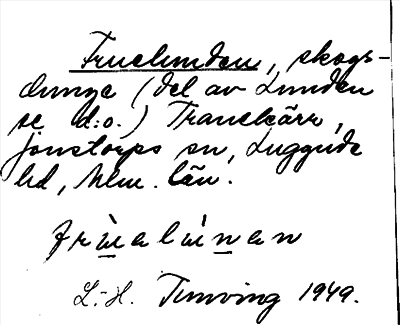 Fruelunden, skogs-
dunge (del av Lunden
se d:o.) Tranekärr,
Jonstorps sn, Luggude
hd, Mlm. län.
frùalúnan
L.-H. Tunving 1949.